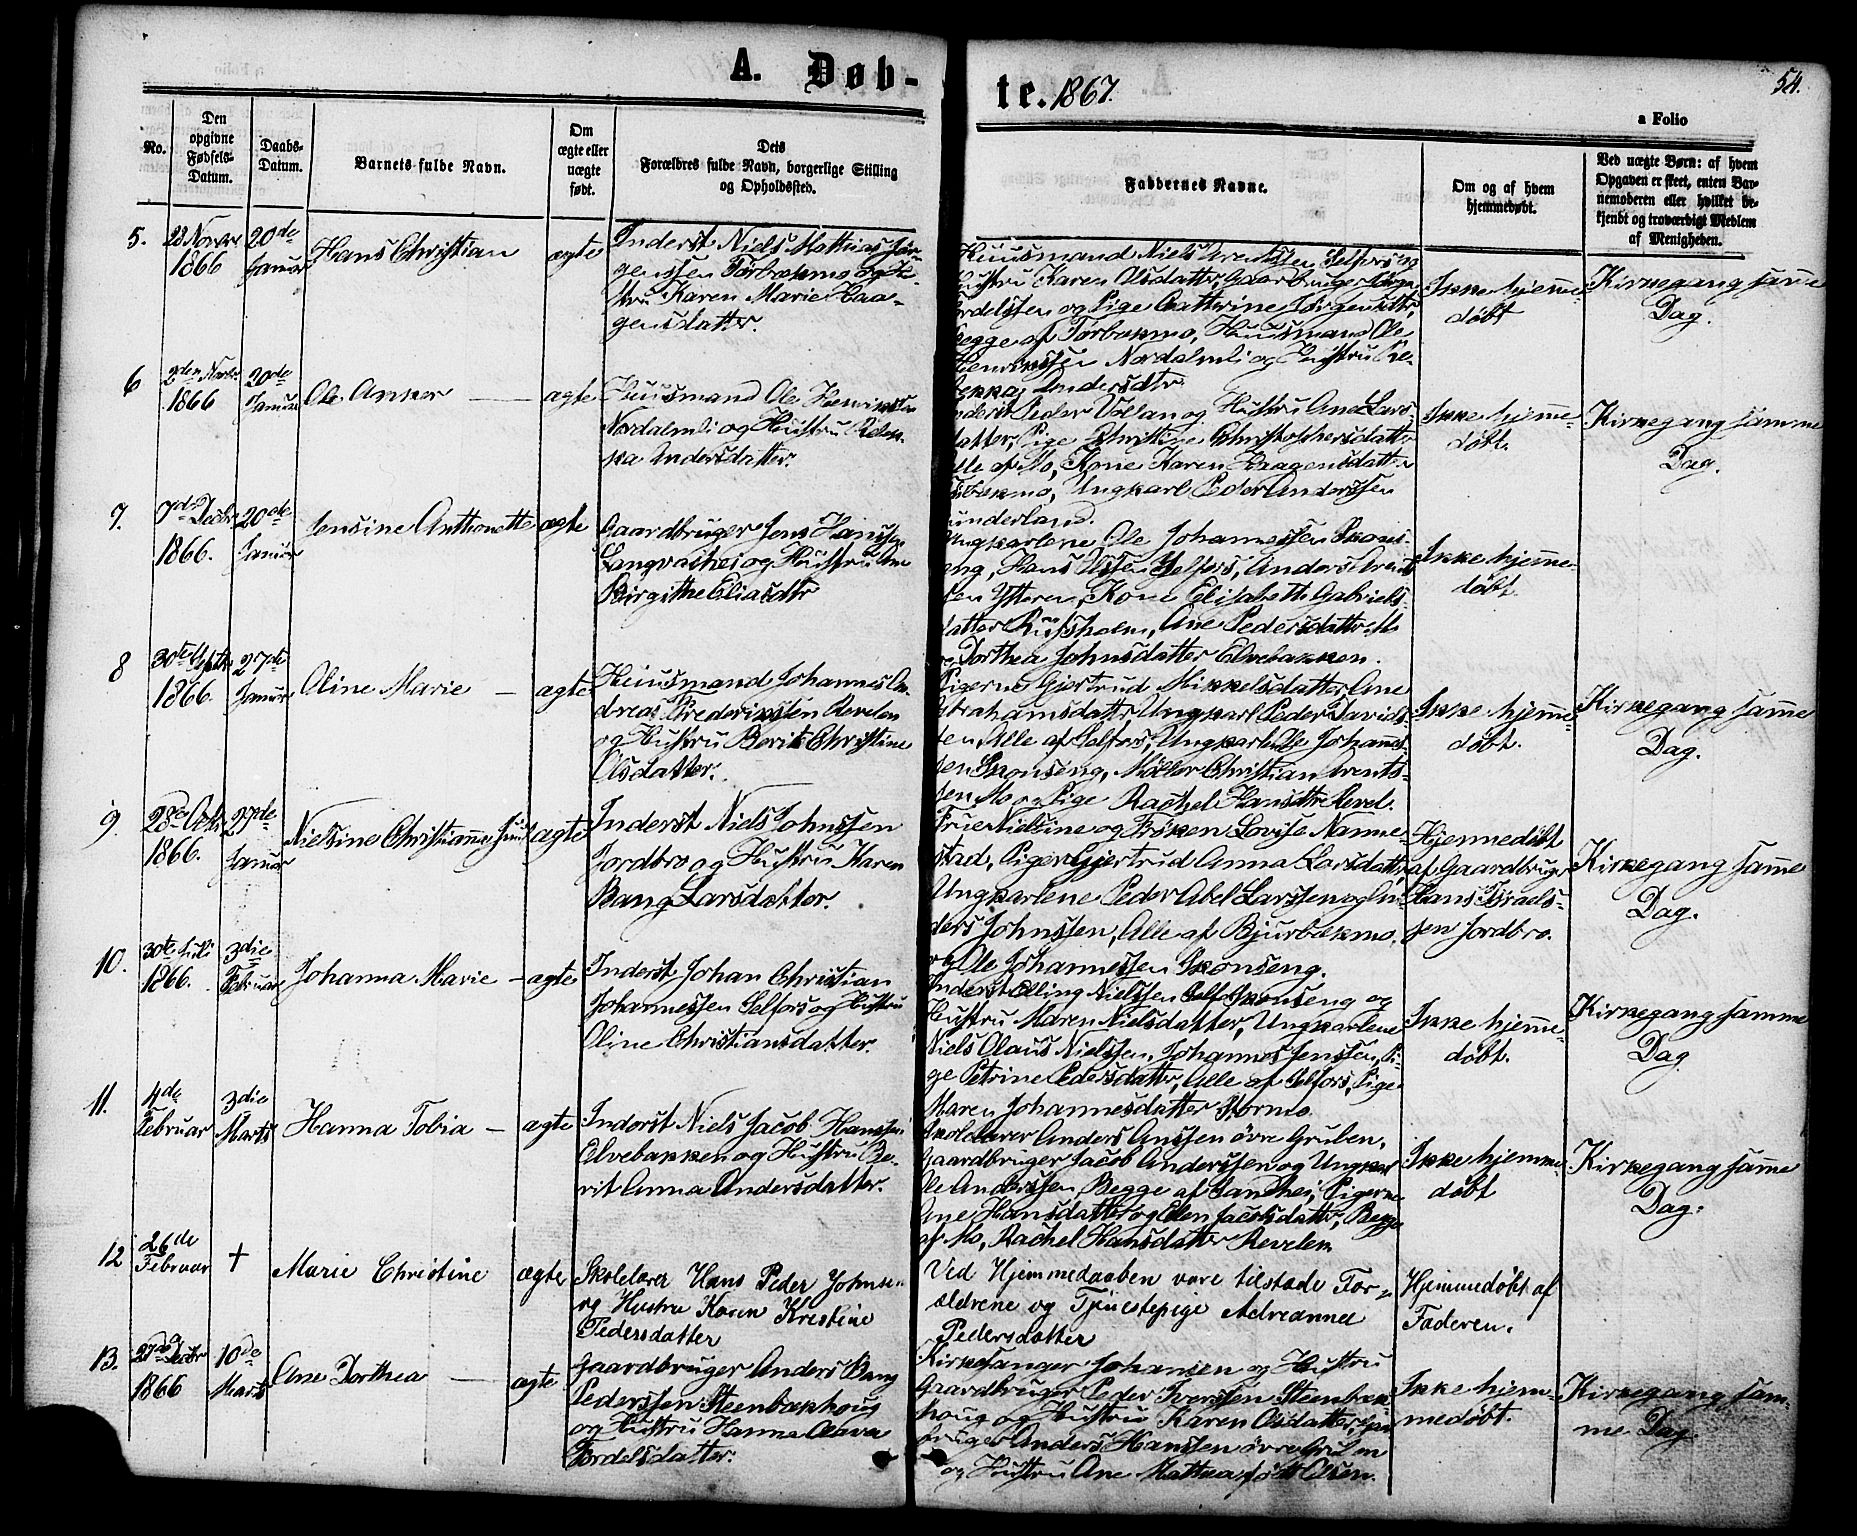 A. Døb-
te. 1867.
54.
a Folio
No.
Den
opgivne
Fødsels-
Datum.
Daabs-
Datum.
Barnets fulde Navn.
Om
ægte eller
uægte
født.
Dets
Forældres fulde Navn, borgerlige Stilling
og Opholdssted.
Faddernes Navne.
Om og af hvem
hjemmedøbt.
Ved uægte Børn: af hvem
Opgaven er skeet, enten Bar-
nemoderen eller hvilket be-
kjendt og troværdigt Medlem
af Menigheden.
5.
1866
20de
Januar
Hans Christian
ægte
Inderst Niels Mathias Jør-
genssen og Hu-
stru Karen Marie Haa-
gensdatter.
Huusmand Niels Arentssen Selfors og
Hustru Karen Olsdatter, Gaardbruger
og Pige Cathrine Jørgensdtr,
Begge af Huusmand Ole
Henrikssen Nordalmli og Hustru Re-
bekka Andersdtr
Ikke hjemme-
døbt
Kirkegang samme
Dag.
6
1866
20de
Januar
Ole Anker
ægte
Huusmand Ole Henrikssen
Nordalmli og Hustru Rebek-
ka Andersdatter.
Inderst Peder Vollan og Hustru Ane Lars-
datter, Pige Christine Christophersdatter
Alle af Mo, Kone Karen Haagensdatter
Ungkarl Peder Anderssen
Ikke hjemme-
døbt.
Kirkegang samme
Dag.
7.
7de Decbr
1866.
20de
Januar
Jensine Anthonette
ægte
Gaardbruger Jens Hanssen
Langvashei og Hustru Ane
Birgithe Eliasdtr
Ungkarlene Ole Johannessen Skons-
eng, Hans Olssen Selfors, Anders Arent-
sen Ytteren, Kone Elisabeth Gabriels-
datter Ane Pedersdatter
Dorthea Johnsdatter Elvebakken.
Ikke hjemme-
døbt.
8
30te Septbr
1866.
27de
Januar
Oline Marie
ægte
Huusmand Johannes An-
dreas Frederikssen Revelen
og Hustru Berit Christine
Olsdatter.
Pigerne Gjertrud Mikkelsdatter, Ane
Abrahamsdatter, Ungkarl Peder Davids-
sen, Alle af Selfors, Ungkarl Ole Johannes-
sen Skonseng, Møller Christian Arents-
sen Mo og Pige Rachel Hansdtr Revel.
Ikke hjemme-
døbt.
Kirkegang samme
Dag.
9.
28de Octbr
1866.
27de
Januar
Nielsine Christianna
ægte
Inderst Niels Johnssen
Jordbro og Hustru Karen
Bang Larsdatter.
Frue Nielsine og Frøken Lovise Nanne-
stad, Piger Gjertrud Anna Larsdatter
Ungkarlene Peder Abel Larssen og An-
ders Johnssen, Alle af Bjurbækmo.
og Ole Johannessen Skonseng.
Hjemmedøbt
af Gaardbruger
Hans Israels-
sen Jordbro.
Kirkegang samme
Dag.
10.
30te Juli
1866.
3die
Februar
Johanna Marie
ægte
Inderst Johan Christian
Johannessen Selfors og Hustru
Oline Christiansdatter.
Inderst Elling Nielssen Skonseng og
Hustru Maren Nielsdatter, Ungkarlene
Niels Olaus Nielssen, Johannes Jenssen, Pi-
ge Petrine Pedersdatter, Alle af Selfors, Pige
Maren Johannesdatter Stormo
Ikke hjemme-
døbt.
Kirkegang samme
Dag
11.
4de
Februar
3die
Marts
Hanna Tobia
ægte
Inderst Niels Jacob Hanssen
Elvebakken og Hustru Be-
rit Anna Andersdatter.
Skolelærer Anders Anssen øvre Gruben,
Gaardbruger Jacob Anderssen og Ungkarl
Ole Anderssen Begge af Langhei, Pigerne
Ane Hansdatter og Elen Jacobsdatter, Begge
af Mo, Rachel Hansdatter Revelen
Ikke hjemme-
døbt
Kirkegang samme
Dag.
12
26de
Februar
†
Marie Christine
ægte
Skolelærer Hans Peder Johnsen
og Hustru Karen Kristine
Pedersdatter
Ved Hjemmedaaben vare tilstæde For-
ældrene og Tjenestepige Adreanna
Pedersdatter
Hjemmedøbt af
Faderen.
13.
27de Decbr
1866
10de
Marts
Ane Dorthea
ægte
Gaardbruger Anders Bang
Pederssen Steenbækhoug
og Hustru Hanna Olava
Fordelsdatter.
Kirkesanger Johansen og Hustru
Gaardbruger Peder Iverssen Steenbæk-
houg og Hustru Karen Olsdatter, Gaard-
bruger Anders Hanssen øvre Gruben
og Hustru Ane Mathea født Olsen.
Ikke hjem-
medøbt.
Kirkegang sam-
me Dag.